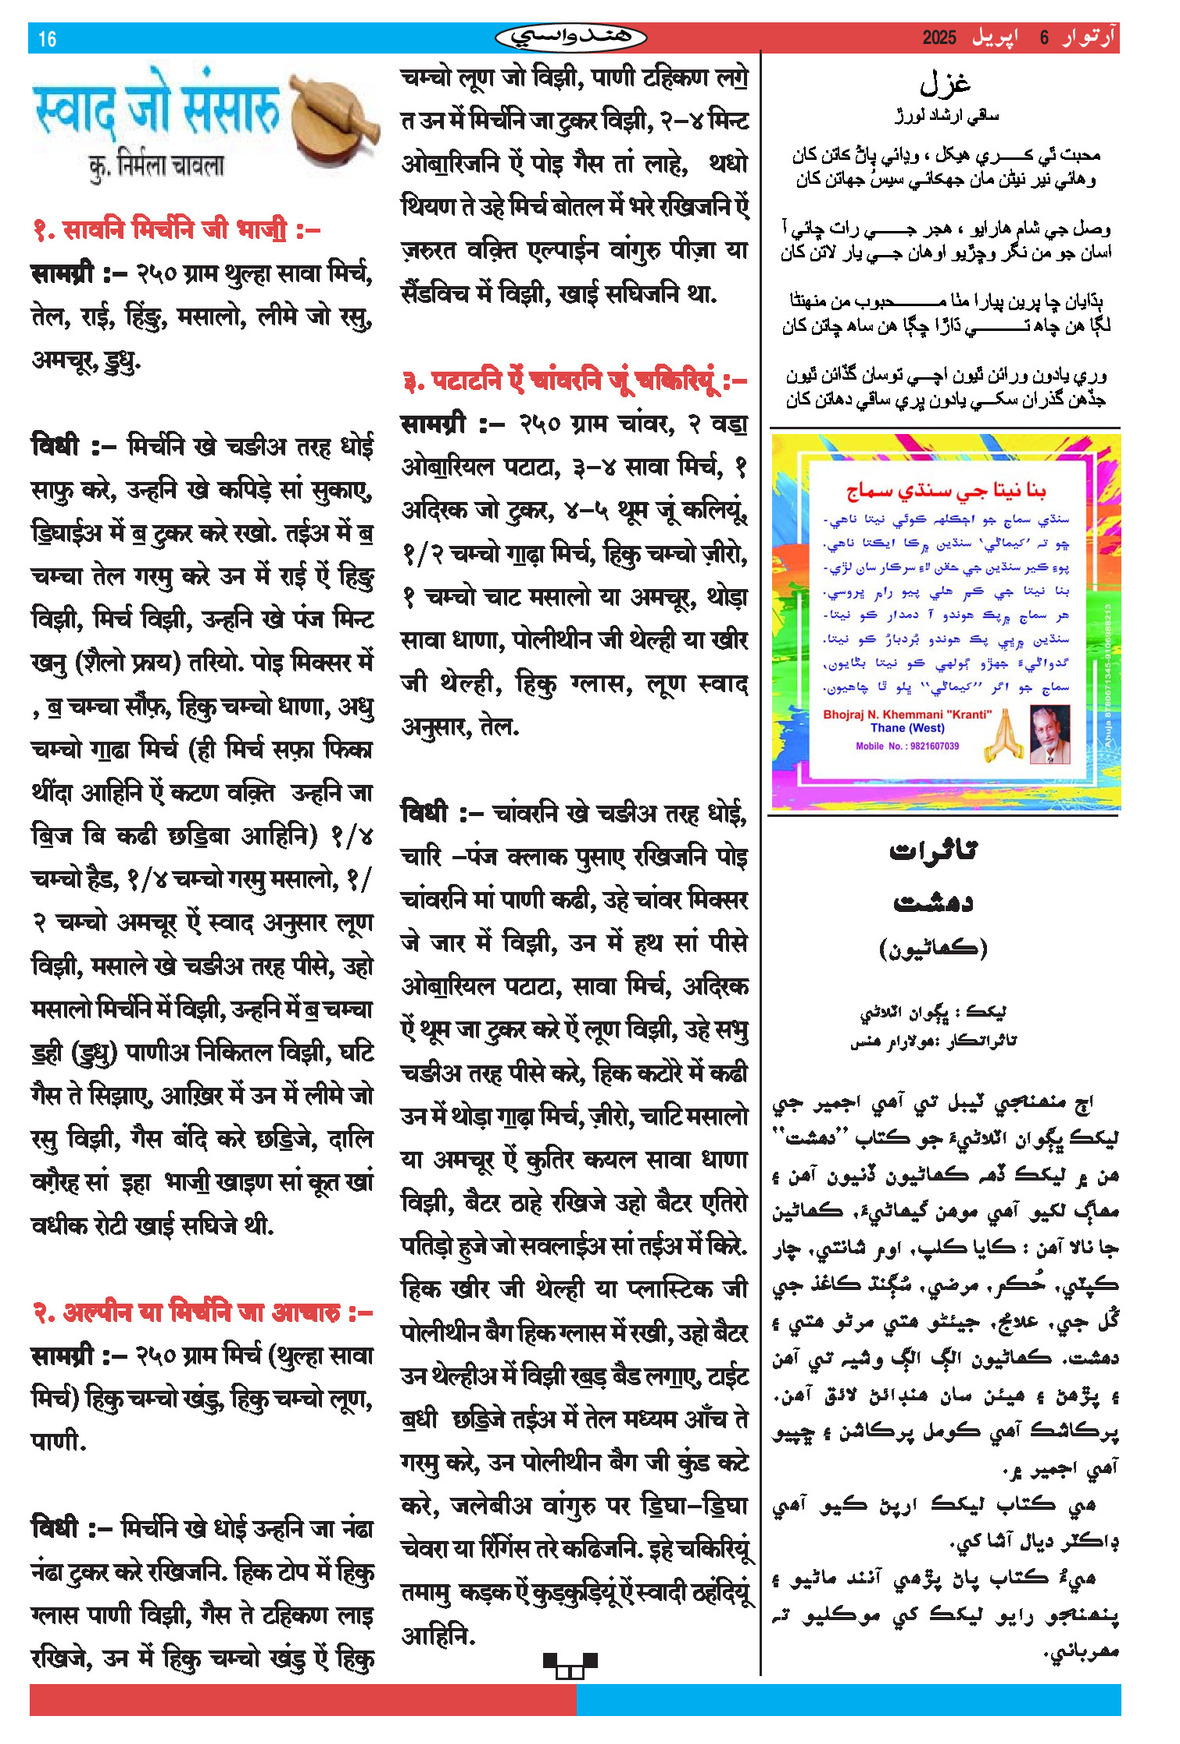 16
هندواسي
آرتوار 6 اپريل 2025
स्वाद जो संसारु
कु. निर्मला चावला
१. सावनि मिर्चनि जी भाजी॒ :–
सामग्री :– २५० ग्राम थुल्हा सावा मिर्च,
तेल, राई, हिंङु, मसालो, लीमे जो रसु,
अमचूर, डु॒धु.
विधी :– मिर्चनि खे चङीअ तरह धोई
साफु करे, उन्हनि खे कपिड़े सां सुकाए,
डि॒घाईअ में ब॒ टुकर करे रखो. तईअ में ब॒
चम्चा तेल गरमु करे उन में राई ऐं हिङु
विझी, मिर्च विझी, उन्हनि खे पंज मिन्ट
खनु (शैलो फ्राय) तरियो. पोइ मिक्सर में
, ब॒ चम्चा सौंफ़, हिकु चम्चो धाणा, अधु
चम्चो गा॒ढा मिर्च (ही मिर्च सफ़ा फिका
थींदा आहिनि ऐं कटण वक़्ति उन्हनि जा
बि॒ज बि कढी छडि॒बा आहिनि) १/४
चम्चो हैड, १/४ चम्चो गरमु मसालो, १/
२ चम्चो अमचूर ऐं स्वाद अनुसार लूण
विझी, मसाले खे चङीअ तरह पीसे, उहो
मसालो मिर्चनि में विझी, उन्हनि में ब॒ चम्चा
ड॒ही (डु॒धु) पाणीअ निकितल विझी, घटि
गैस ते सिझाए, आख़िर में उन में लीमे जो
रसु विझी, गैस बंदि करे छडि॒जे, दालि
वग़ैरह सां इहा भाजी॒ खाइण सां कूत खां
वधीक रोटी खाई सघिजे थी.
२. अल्पीन या मिर्चनि जा आचारु :–
सामग्री :– २५० ग्राम मिर्च (थुल्हा सावा
मिर्च) हिकु चम्चो खंडु, हिकु चम्चो लूण,
पाणी.
विधी :– मिर्चनि खे धोई उन्हनि जा नंढा
नंढा टुकर करे रखिजनि. हिक टोप में हिकु
ग्लास पाणी विझी, गैस ते टहिकण लाइ
रखिजे, उन में हिकु चम्चो खंडु ऐं हिकु
चम्चो लूण जो विझी, पाणी टहिकण लगे॒
त उन में मिर्चनि जा टुकर विझी, २–४ मिन्ट
ओबा॒रिजनि ऐं पोइ गैस तां लाहे, थधो
थियण ते उहे मिर्च बोतल में भरे रखिजनि ऐं
ज़रुरत वक़्ति एल्पाईन वांगुरु पीज़ा या
सैंडविच में विझी, खाई सघिजनि था.
३. पटाटनि ऐं चांवरनि जूं चकिरियूं :–
सामग्री :– २५० ग्राम चांवर, २ वडा॒
ओबा॒रियल पटाटा, ३–४ सावा मिर्च, १
अदिरक जो टुकर, ४–५ थूम जूं कलियूं,
१/२ चम्चो गा॒ढ़ा मिर्च, हिकु चम्चो ज़ीरो,
१ चम्चो चाट मसालो या अमचूर, थोड़ा
सावा धाणा, पोलीथीन जी थेल्ही या खीर
जी थेल्ही, हिकु ग्लास, लूण स्वाद
अनुसार, तेल.
विधी :– चांवरनि खे चङीअ तरह धोई,
चारि –पंज क्लाक पुसाए रखिजनि पोइ
चांवरनि मां पाणी कढी, उहे चांवर मिक्सर
जे जार में विझी, उन में हथ सां पीसे
ओबा॒रियल पटाटा, सावा मिर्च, अदिरक
ऐं थूम जा टुकर करे ऐं लूण विझी, उहे सभु
चङीअ तरह पीसे करे, हिक कटोरे में कढी
उन में थोड़ा गा॒ढ़ा मिर्च, ज़ीरो, चाटि मसालो
या अमचूर ऐं कुतिर कयल सावा धाणा
विझी, बैटर ठाहे रखिजे उहो बैटर एतिरो
पतिड़ो हुजे जो सवलाईअ सां तईअ में किरे.
हिक खीर जी थेल्ही या प्लास्टिक जी
पोलीथीन बैग हिक ग्लास में रखी, उहो बैटर
उन थेल्हीअ में विझी रब॒ड़ बैंड लगा॒ए, टाईट
ब॒धी छडि॒जे तईअ में तेल मध्यम आँच ते
गरमु करे, उन पोलीथीन बैग जी कुंड कटे
करे, जलेबीअ वांगुरु पर डि॒घा–डि॒घा
चेवरा या रिंगिंस तरे कढिजनि. इहे चकिरियूं
तमामु कड़क ऐं कुड़कुड़ियूं ऐं स्वादी ठहंदियूं
आहिनि.
غزل
ساقي ارشاد لورڙ
محبت ٿي ڪري هيڪل ، وڍائي پاڻ ڪاتن کان
وهائي نير نيڻن مان جهڪائي سيسُ جهاتن کان
وصل جي شام هارايو ، هجر جي رات ڇائي آ
اسان جو من نگر وڇڙيو اوهان جي يار لاتن کان
ٻڌايان ڇا پرين پيارا مٺا محبوب من منهنٿا
لڳا هن چاھ تي ڌاڙا ڇڳا هن ساھ ڇاتن کان
وري يادون ورائن ٿيون اچي توسان گڏائن ٿيون
جڏهن گذران سکي يادون ڀري ساقي دهاتن کان
بنا نيتا جي سنڌي سماج
سنڌي سماج جو اڄڪلهہ ڪوئي نيتا ناهي-
ڇو تہ ’ڪيماڻي‘ سنڌين ۾ ڪا ايڪتا ناهي.
پوءِ ڪير سنڌين جي حقن لاءِ سرڪار سان لڙي-
بنا نيتا جي ڪم هلي پيو رام ڀروسي.
هر سماج ۾ هڪ هوندو آ دمدار ڪو نيتا-
سنڌين ۾ ڀي هڪ هوندو بُردباڙ ڪو نيتا.
گدواڻيءَ جهڙو ڳولهي ڪو نيتا بڻايون،
سماج جو اگر ’’ڪيماڻي‘‘ ڀلو ٿا چاهيون.
Bhojraj N. Khemmani "Kranti"
Thane (West)
Mobile No. : 9821607039
Ahuja 8780671345-9106988213
تاثرات
دهشت
(ڪهاڻيون)
ليکڪ : ڀڳوان اٽلاڻي
تاثراتڪار :هولارام هنس
اڄ منهنجي ٽيبل تي آهي اجمير جي
ليکڪ ڀڳوان اٽلاڻيءَ جو ڪتاب ’’دهشت‘‘
هن ۾ ليکڪ ڏهہ ڪهاڻيون ڏنيون آهن ۽
مهاڳ لکيو آهي موهن گيهاڻيءَ. ڪهاڻين
جا نالا آهن : ڪايا ڪلپ، اوم شانتي، چار
ڪپٽي، حُڪم، مرضي، سُڳنڌ ڪاغذ جي
گُل جي، علاجُ، جيئڻو هتي مرڻو هتي ۽
دهشت. ڪهاڻيون الڳ الڳ وشيہ تي آهن
۽ پڙهڻ ۽ هيئن سان هنڊائڻ لائق آهن.
پرڪاشڪ آهي ڪومل پرڪاشن ۽ ڇپيو
آهي اجمير ۾.
هي ڪتاب ليکڪ ارپڻ ڪيو آهي
ڊاڪٽر ديال آشا کي.
هيءُ ڪتاب پاڻ پڙهي آنند ماڻيو ۽
پنهنجو رايو ليکڪ کي موڪليو تہ
مهرباني.